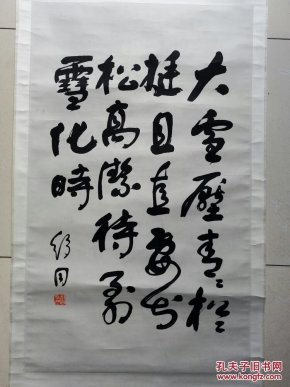 大雪壓青〻松〻
挺且直要知
松高潔待到
雪化時
舒同
孔夫子旧书网